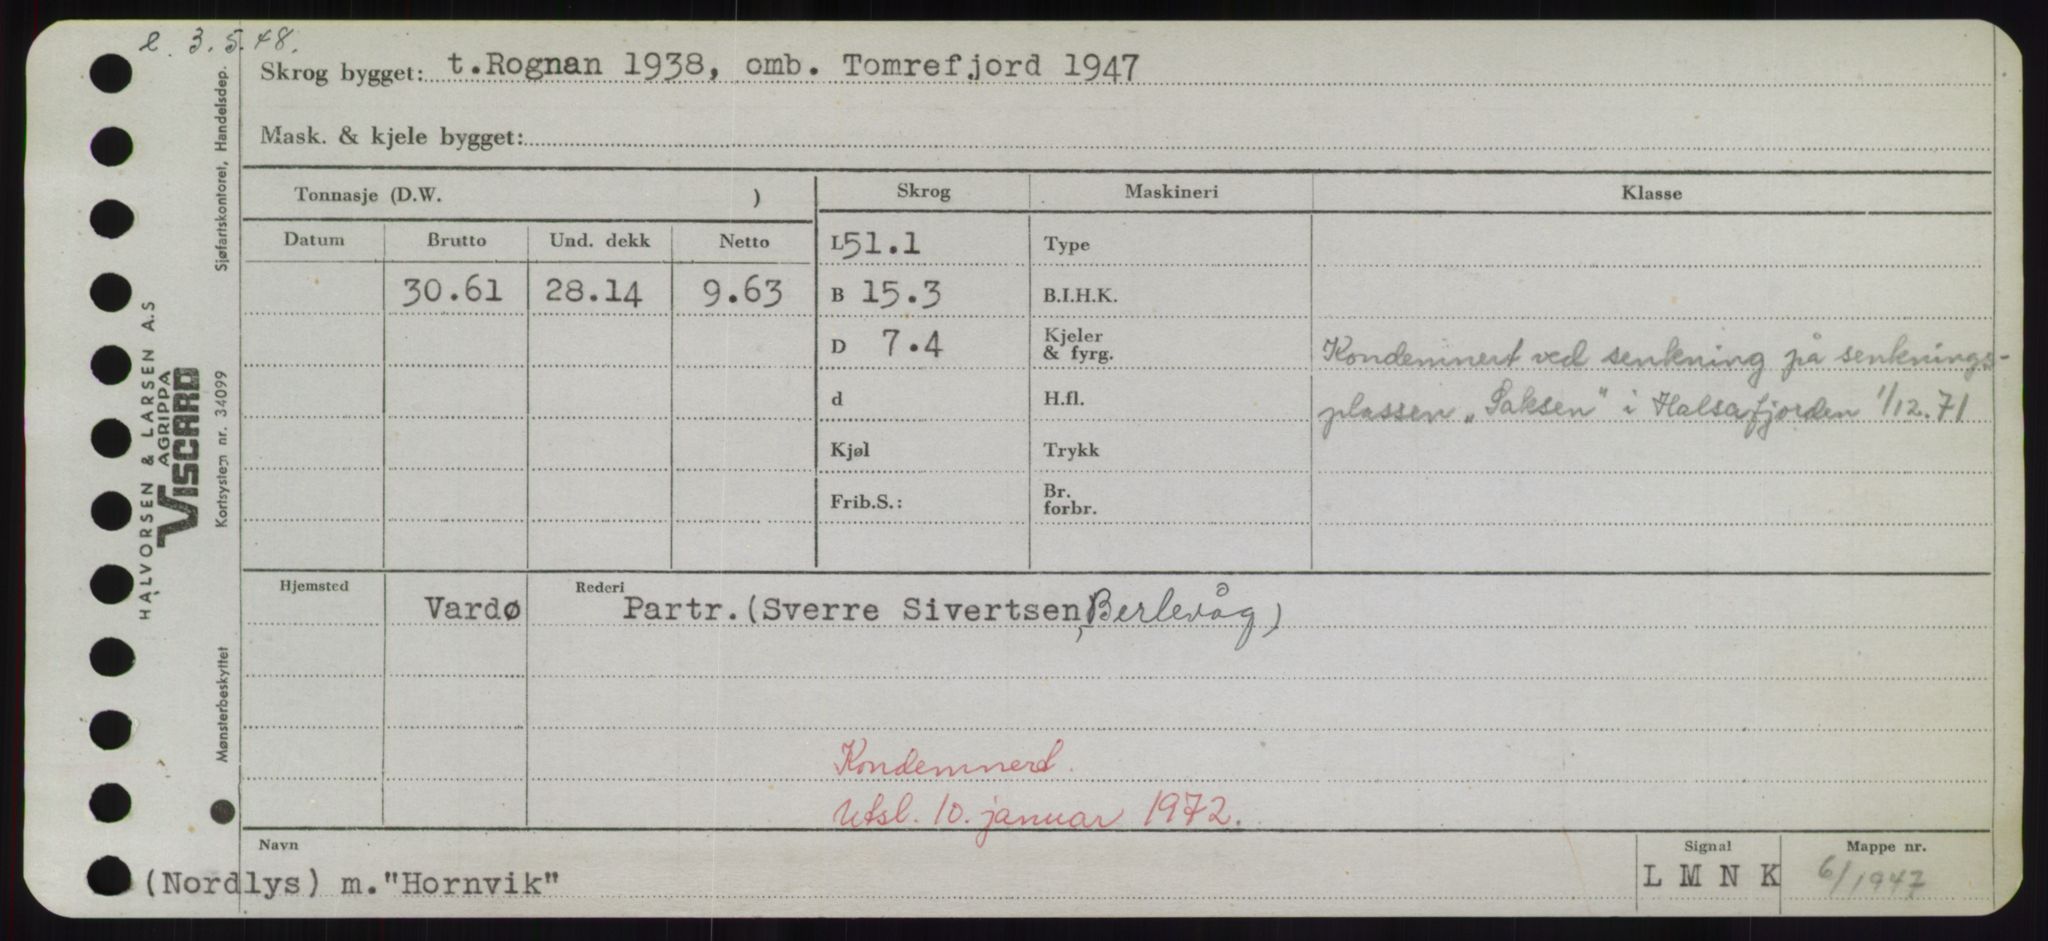 e 3.5.48.
Skrog bygget: t.Rognan 1938, omb. Tomrefjord 1947
Mask. & kjele bygget:
Tonnasje (D.W. )
Skrog Maskineri Klasse
Datum Brutto Und. dekk Netto
L 51.1 Type
30.61 28.14 9.63 B 15.3 B.I.H.K.
D 7.4 Kjeler & fyrg.
Kondemnert ved senkning på senknings-
d H.fl. plassen „Saksen" i Halsafjorden 1/12.71
Kjøl Trykk
Frib.S.: Br. forbr.
Hjemsted Rederi
Vardø Partr.(Sverre Sivertsen, Berlevåg)
Kondemnert.
Utsl. 10. januar 1972.
Navn Signal Mappe nr.
(Nordlys) m."Hornvik" L M N K 6/1947
HALVORSEN & LARSEN A.S
AGRIPPA
VISCARD
Mønsterbeskyttet Kortsystem nr. 34099 Sjøfartskontoret, Handelsdep.